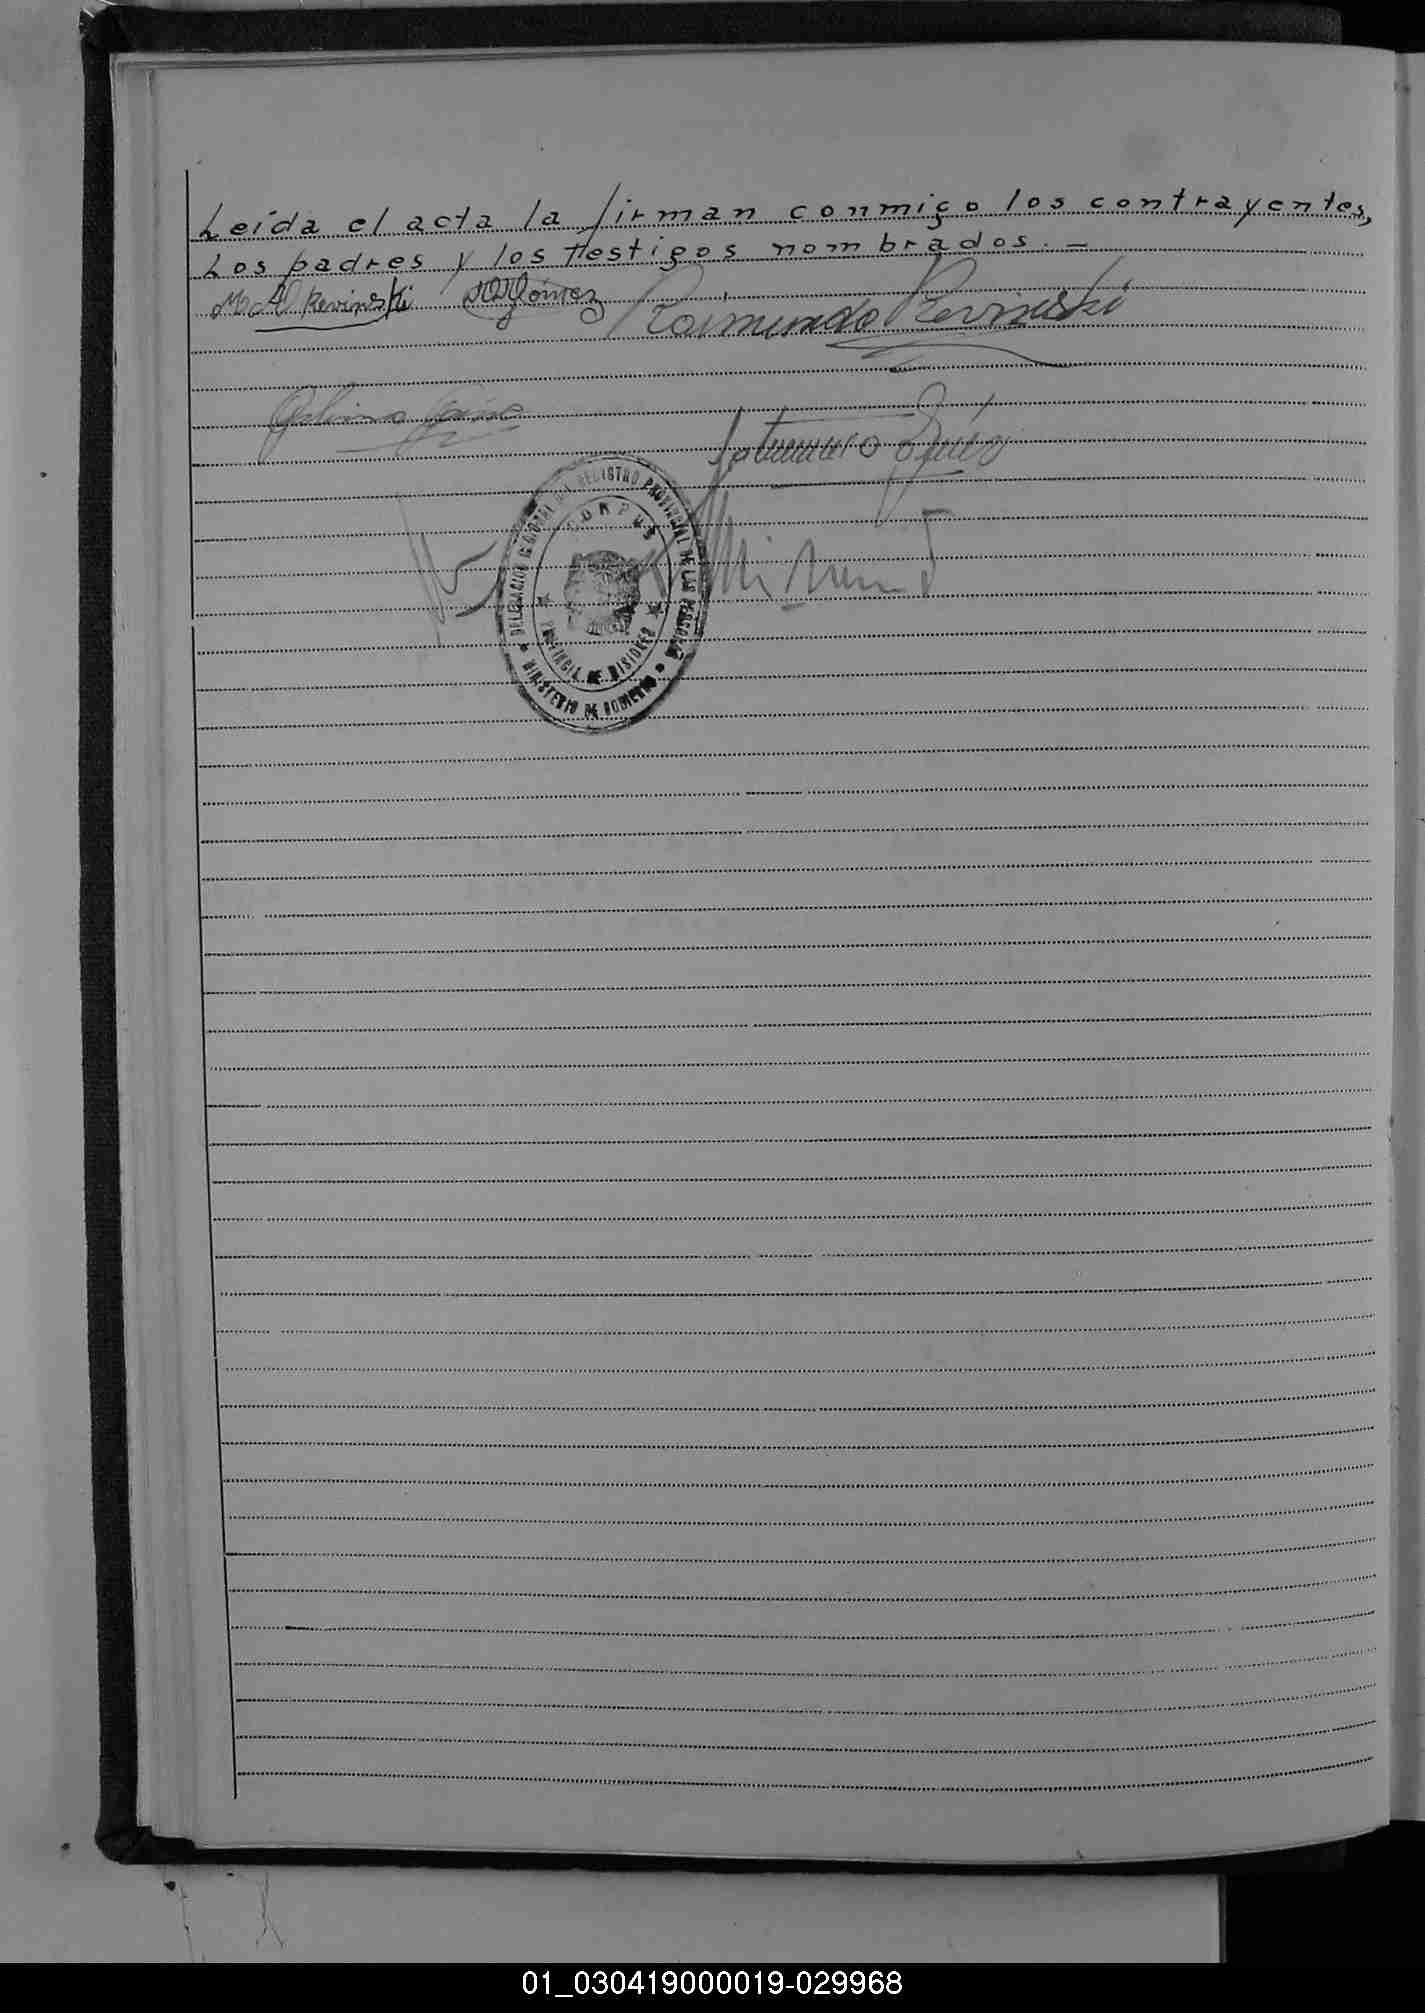 Leída el acta la firman conmigo los contrayentes,
Los padres y los testigos nombrados. —
Revinski Gómez Raimundo Revinski
Saturnino
DELEGACION REGIONAL DEL REGISTRO PROVINCIAL DE LAS PERSONAS
CORPUS
PROVINCIA DE MISIONES
MINISTERIO DE GOBIERNO
01_030419000019-029968